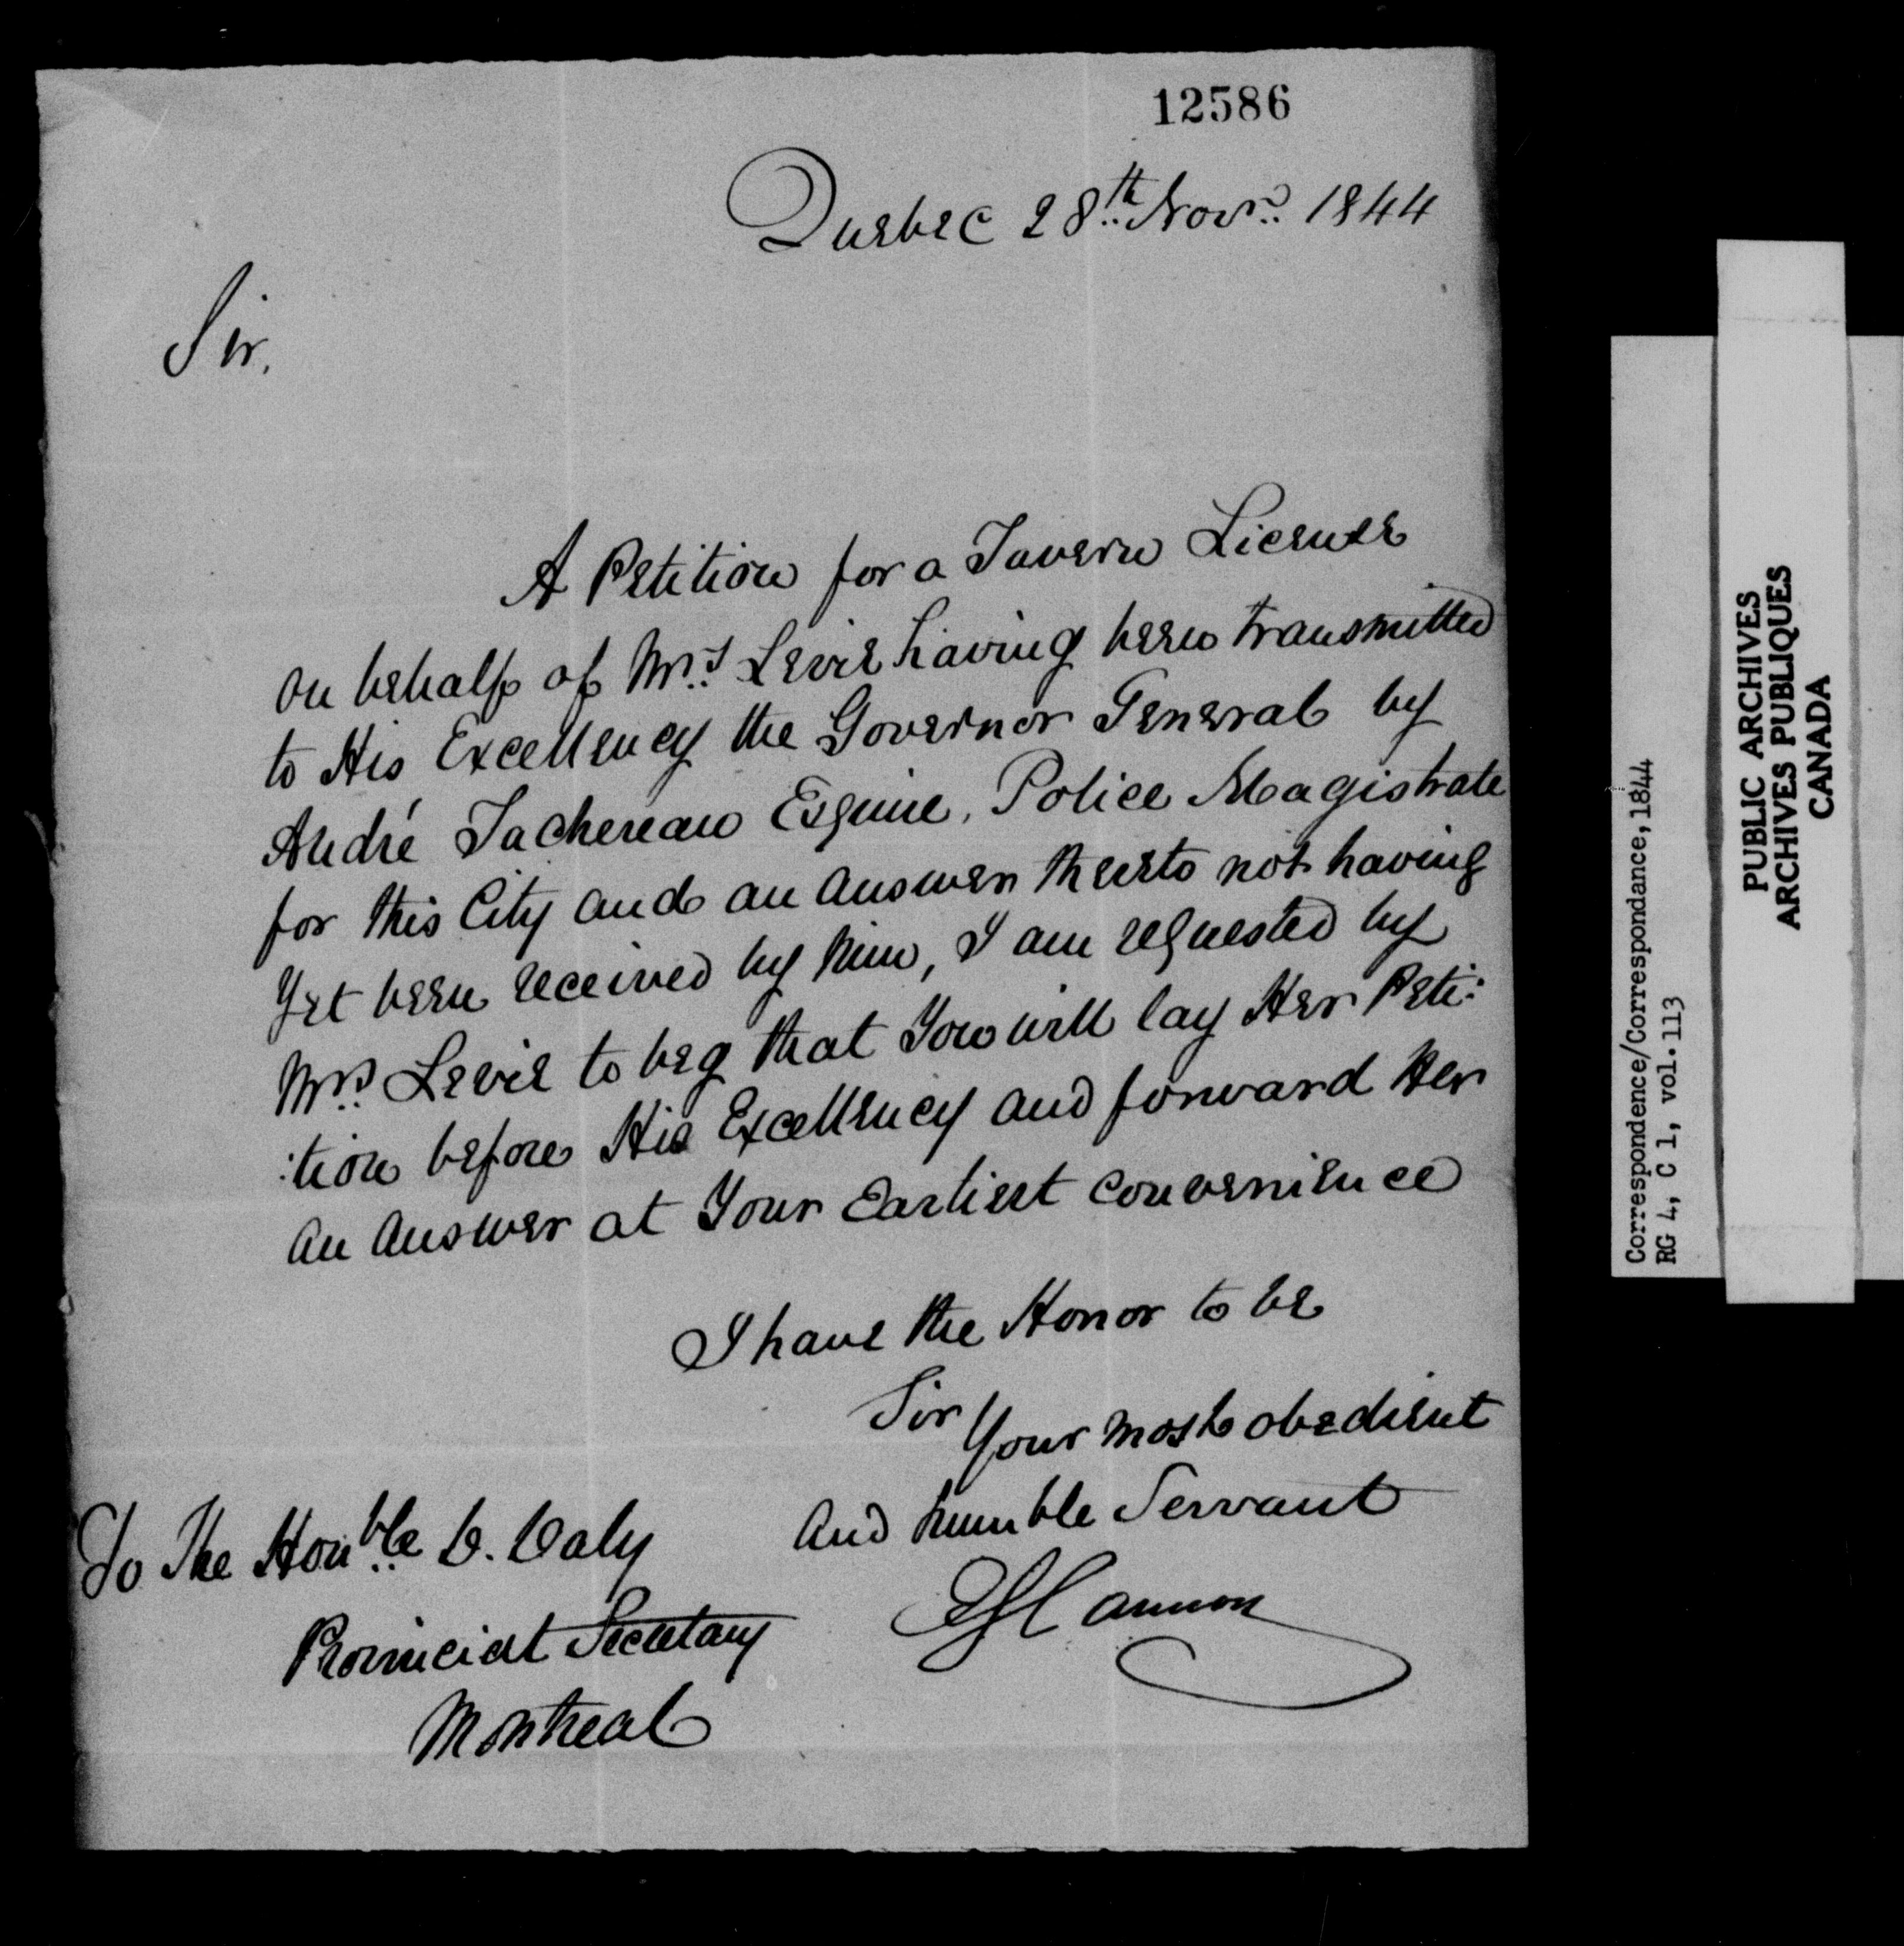 12586
Quebec 28th Novr. 1844
Sir,
A Petition for a Tavern License
on behalf of Mrs. Levie having been transmitted
to His Excellency the Governor General by
André Tachereau Esquire, Police Magistrate
for this City and an answer thereto not having
Yet been received by him, I am requested by
Mrs. Levie to beg that You will lay Her Peti:
:tion before His Excellency and forward Her
an answer at Your Earliest convenience
I have the Honor to be
Sir
Your most obedient
and humble Servant
Cannon
To The Honble. D. Daly
Provincial Secretary
Montreal
Correspondence/Correspondance, 1844
RG 4, C 1, vol. 113
PUBLIC ARCHIVES
ARCHIVES PUBLIQUES
CANADA